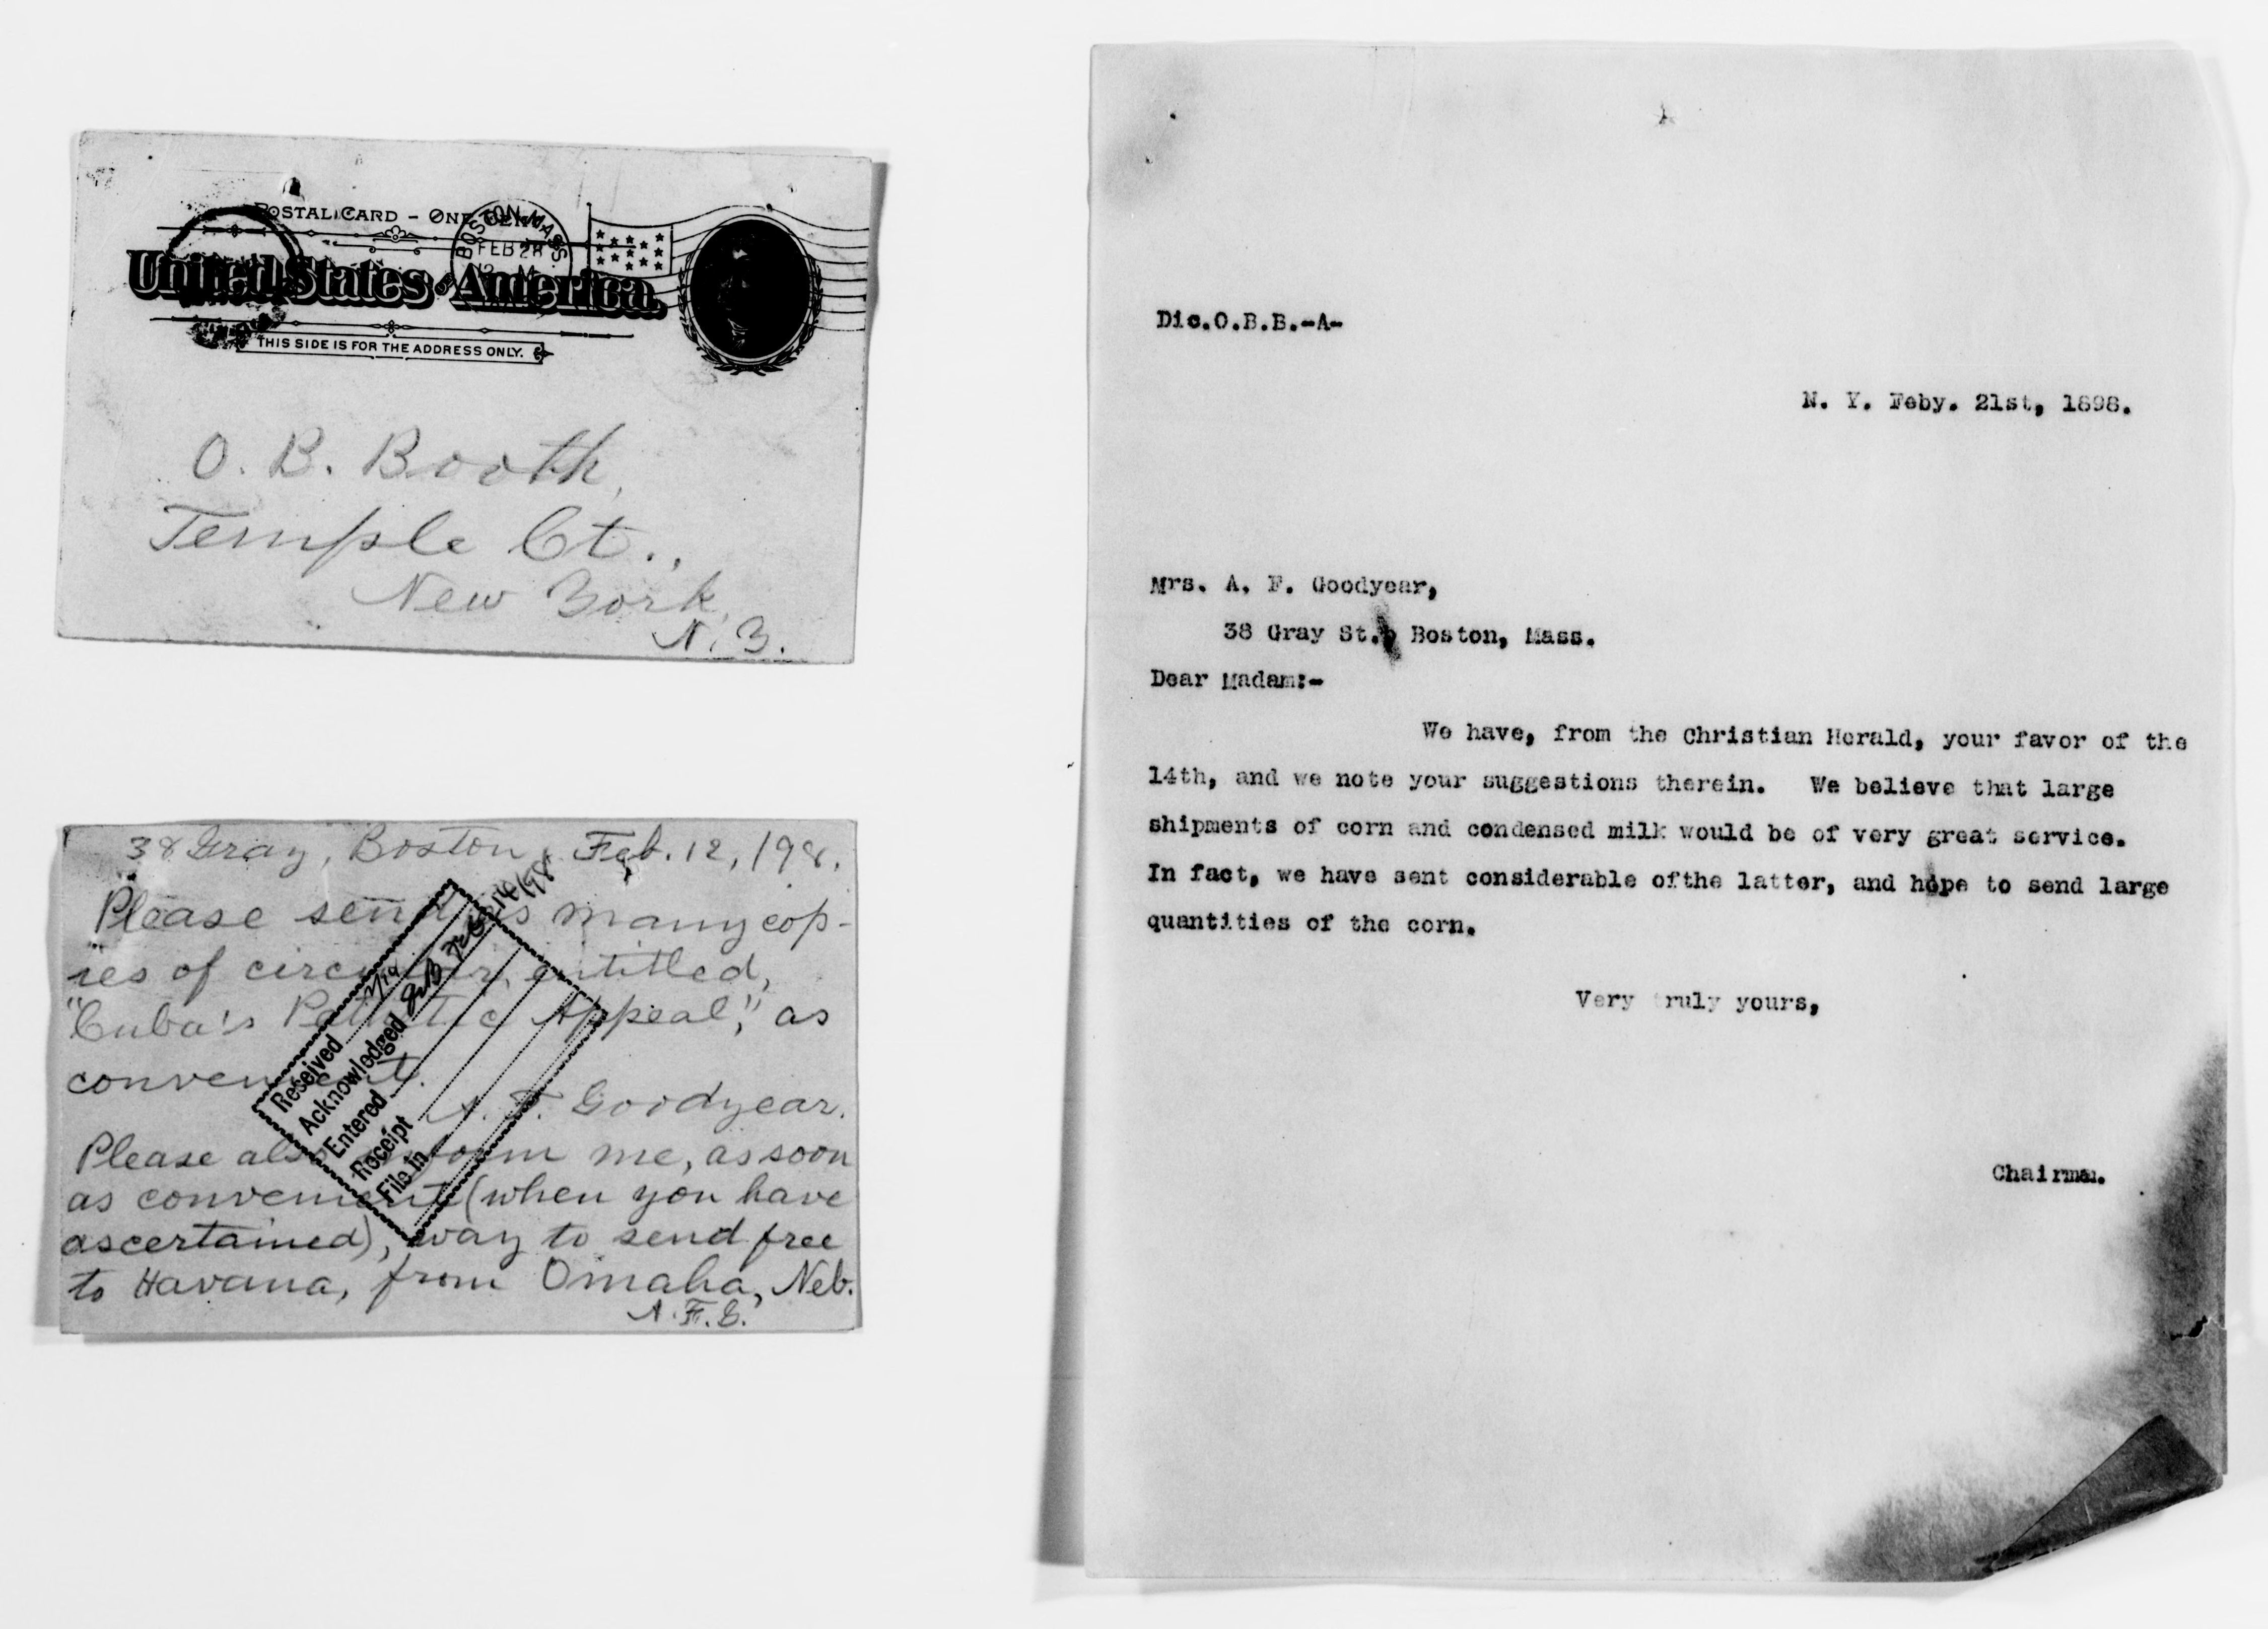 POSTAL CARD - ONE CENT
BOSTON, MASS
FEB 28
12 M
United States of America.
THIS SIDE IS FOR THE ADDRESS ONLY.
O. B. Booth,
Temple Ct.,
New York,
N. Y.
38 Gray, Boston, Feb. 12, 198.
Please send as many cop-
ies of circular, entitled,
"Cuba's Pathetic Appeal," as
convenient.
A. F. Goodyear.
Please also inform me, as soon
as convenient (when you have
ascertained), way to send free
to Havana, from Omaha, Neb.
A. F. G.
Received
Acknowledged
Entered
Receipt
File in
Dic.O.B.B.-A-
N. Y. Feby. 21st, 1898.
Mrs. A. F. Goodyear,
38 Gray St., Boston, Mass.
Dear Madam:-
We have, from the Christian Herald, your favor of the
14th, and we note your suggestions therein. We believe that large
shipments of corn and condensed milk would be of very great service.
In fact, we have sent considerable ofthe latter, and hope to send large
quantities of the corn.
Very truly yours,
Chairman.